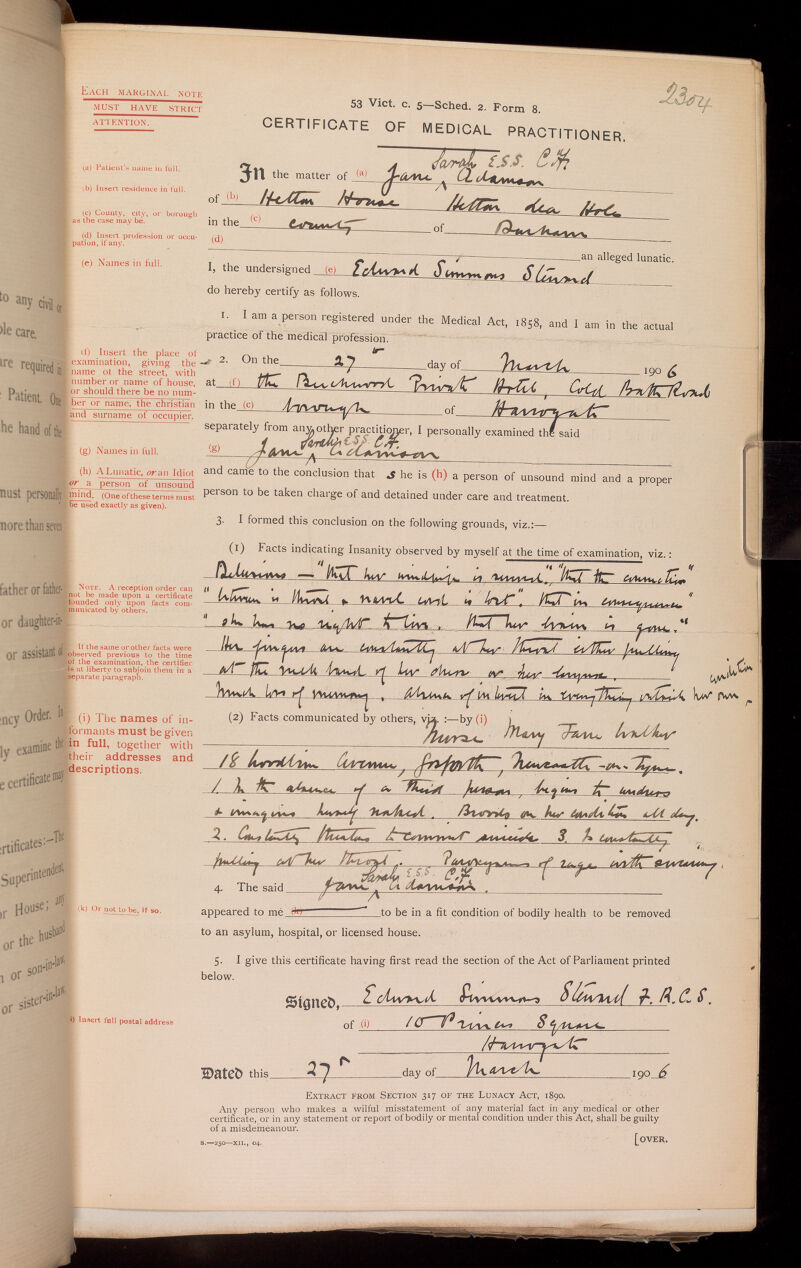 2304
EACH MARGINAL NOTE
MUST HAVE STRICT
ATTENTION.
53 Vict. c. 5—Sched. 2. Form 8.
CERTIFICATE OF MEDICAL PRACTITIONER.
(a) Patient's name in full.
Sarah E.S.S. C.F.
In the matter of (a) Jane ^ Adamson
(b) Insert residence in full.
of (b) Hetton House Hetton Lea Hole
(c) County, city, or borough
as the case may be.
in the (c) county of Durham
(d) Insert profession or occu-
pation, if any.
(d)
an alleged lunatic.
(e) Names in full.
I, the undersigned (e) Edward Simmons Steward
do hereby certify as follows.
1. I am a person registered under the Medical Act, 1858, and I am in the actual
practice of the medical profession.
(f) Insert the place of
examination, giving the
name of the street, with
number or name of house,
or should there be no num-
ber or name, the christian
and surname of occupier.
2. On the 27th day of March 1906
at (f) the Beechwood Private Hotel, Cold Bath Road
in the (c) borough of Harrogate
separately from any other practitioner, I personally examined the said
(g) Names in full.
Sarah E.S.S. C.F.
(g) Jane ^ Adamson
(h) A Lunatic, or an Idiot
or a person of unsound
mind. (One of these terms must
be used exactly as given).
and came to the conclusion that s he is (h) a person of unsound mind and a proper
person to be taken charge of and detained under care and treatment.
3. I formed this conclusion on the following grounds, viz.:—
(1) Facts indicating Insanity observed by myself at the time of examination, viz.:
Delusions — "that her windpipe is severed", "that the connection"
NOTE. A reception order can
not be made upon a certificate
founded only upon facts com-
municated by others.
"between is throat & navel cord is lost". that in consequence"
"she has no right to live. that her brain is gone."
If the same or other facts were
observed previous to the time
of the examination, the certifier
is at liberty to subjoin them in a
separate paragraph.
Her fingers are constantly at her throat either pulling
at the neck band of her dress or her larynx.
Much loss of memory. absence of interest in everything outside her own condition
(i) The names of in-
formants must be given
in full, together with
their addresses and
descriptions.
(2) Facts communicated by others, viz.:—by (i)
Nurse Mary Jane Walker
18 Woodbine Avenue, Gosforth, Newcastle-on-Tyne.
1. In the absence of a third person, begins to undress
& imagines herself naked. Broods on her condition all day.
2. Constantly threatens to commit suicide 3. Is constantly
pulling at her throat. Paroxysms of rage with swearing.
Sarah E.S.S. C.F.
4. The said Jane ^ Adamson.
(k) Or not to be, if so.
appeared to me (k) to be in a fit condition of bodily health to be removed
to an asylum, hospital, or licensed house.
5. I give this certificate having first read the section of the Act of Parliament printed
below.
Signed, Edward Simmons Steward F.R.C.S.
(l) Insert full postal address
of (l) 10 Princes Square
Harrogate
Dated this 27th day of March 1906
EXTRACT FROM SECTION 317 OF THE LUNACY ACT, 1890.
Any person who makes a wilful misstatement of any material fact in any medical or other
certificate, or in any statement or report of bodily or mental condition under this Act, shall be guilty
of a misdemeanour.
S.—250—XII., 04.
[OVER.
to any civil or
ble care.
are required in
Patient. One
he hand of the
must personally
more than seven
father or father-
or daughter-in-
or assistant of
ncy Order. It
ly examine the
e certificate may
rtificates:—The
Superintendent,
r House; any
or the husband
or son-in-law,
or sister-in-law,